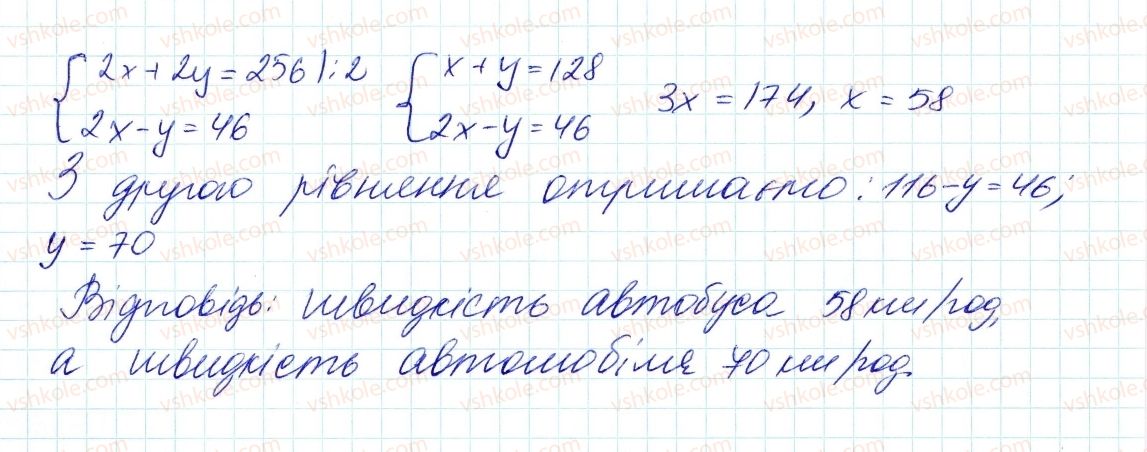 { 2x + 2y = 256 | : 2    { x + y = 128    3x = 174, x = 58
{ 2x - y = 46    { 2x - y = 46
З другого рівняння отримаємо: 116 - y = 46;
y = 70
Відповідь: швидкість автобуса 58 км/год,
а швидкість автомобіля 70 км/год.
vshkole.com